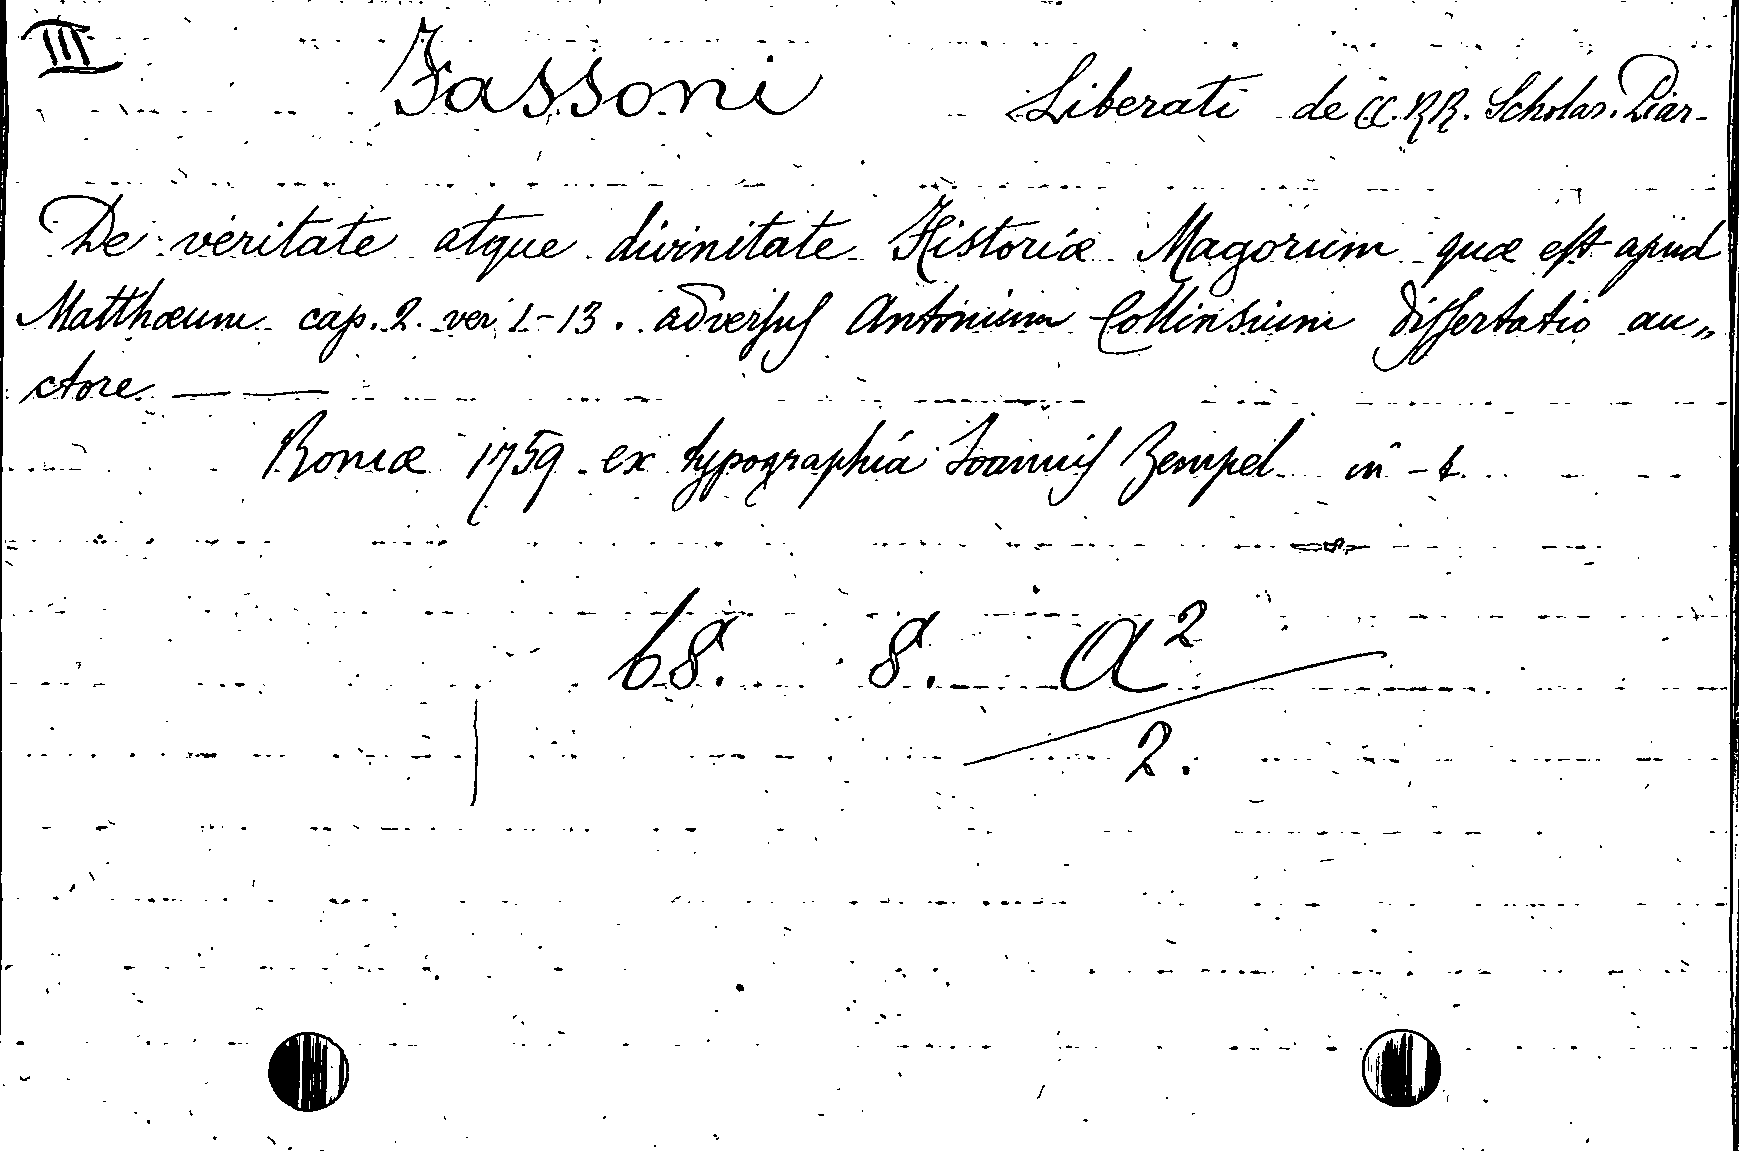 III
Fassoni Liberati de CC. RR. Scholar. Piar-
De veritate atque divinitate Historiæ Magorum quæ est apud
Matthæum cap. 2. ver 1-13. adversus Antonium Collinsium dissertatio au„
ctore — —
Romæ 1759 ex typographiá Ioannis Zempel in-4.
68. 8. a²
2.